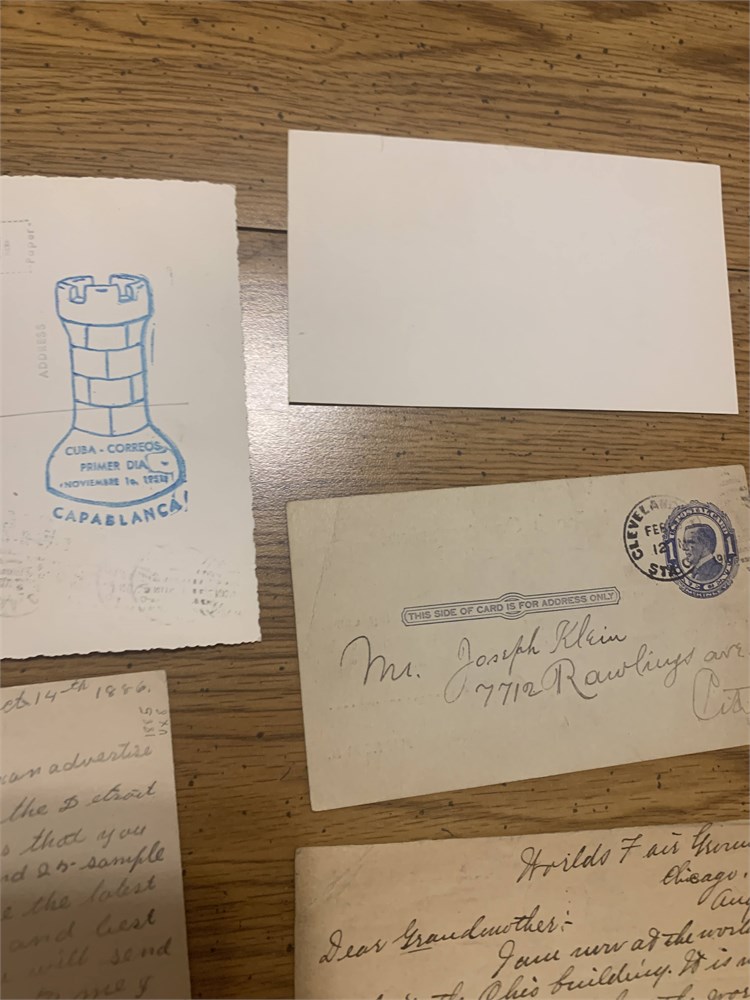 Paper
ADDRESS
CUBA - CORREOS
PRIMER DIA
NOVIEMBRE 16, 1951
CAPABLANCA!
CLEVELAND
FEB
12
STA
POSTAL CARD
1
THIS SIDE OF CARD IS FOR ADDRESS ONLY
Mr. Joseph Klein
7712 Rawlings ave
14th 1886.
1885
an advertise
the Detroit
that you
25 sample
the latest
and best
will send
Worlds Fair Groun
Chicago.
Aug
Dear Grandmother:-
I am now at the worl
the Ohio building. It is